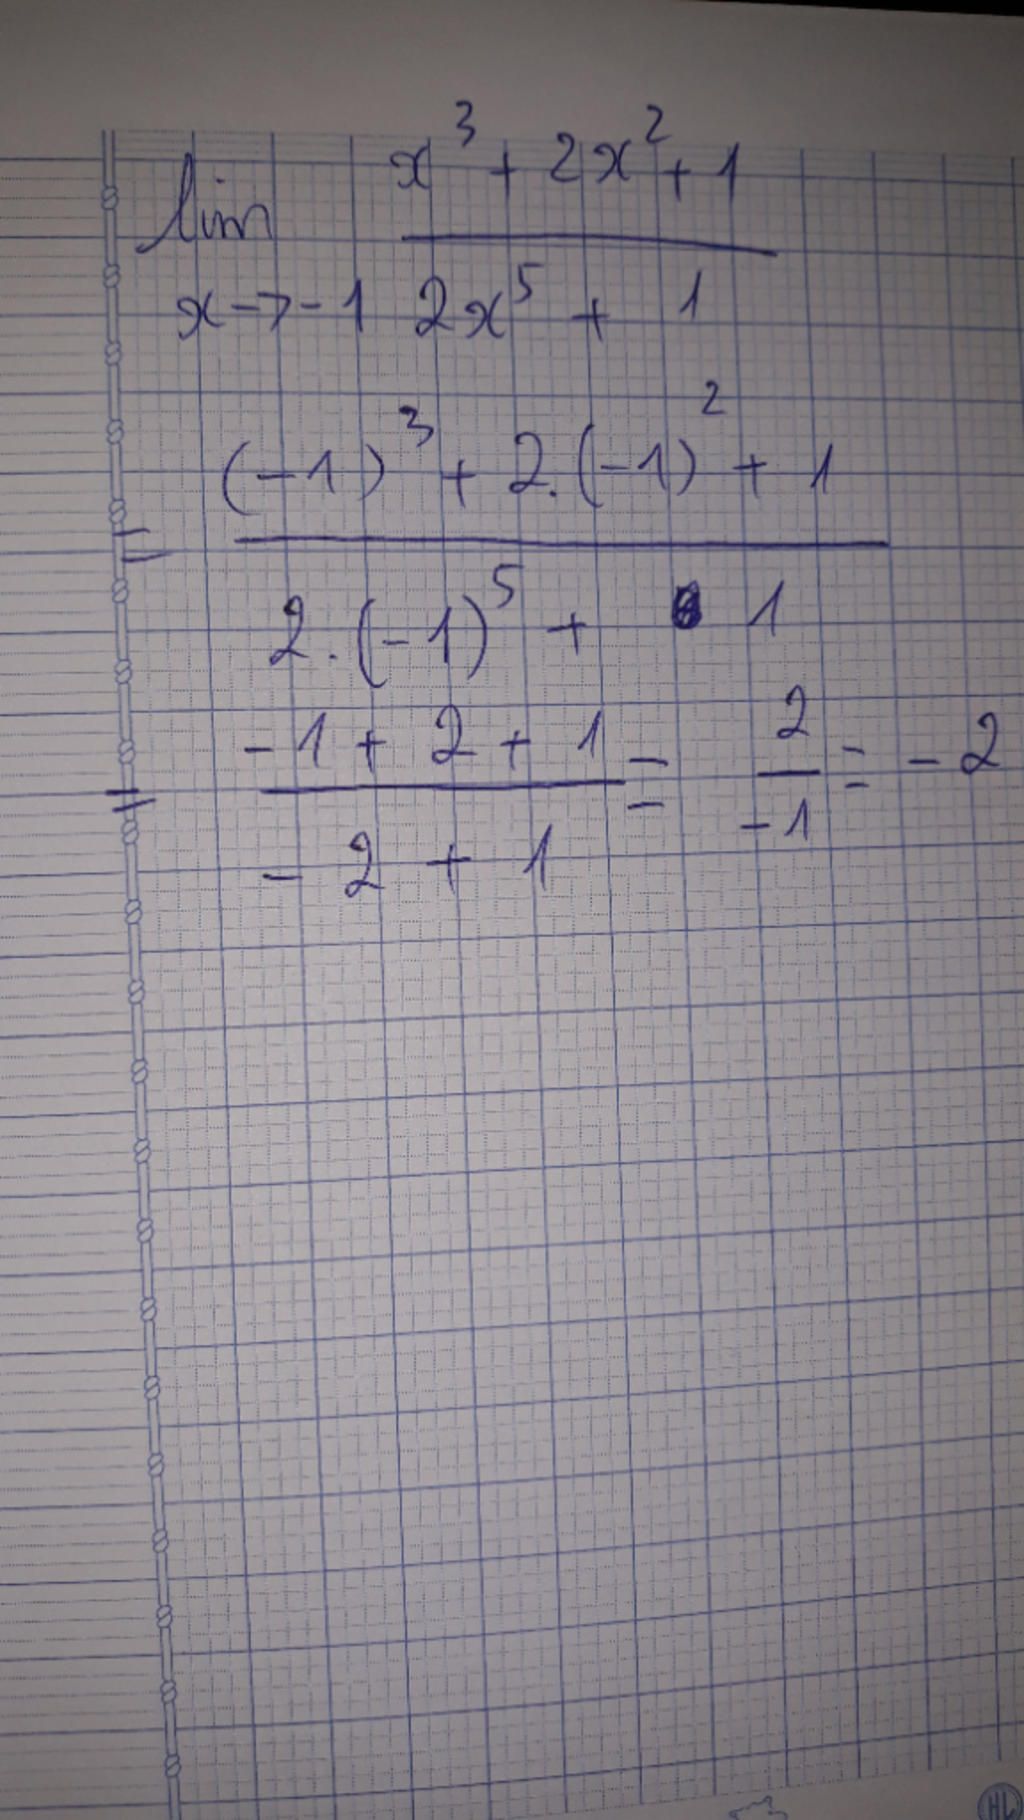 lim x³ + 2x² + 1
x->-1 2x⁵ + 1
= (-1)³ + 2.(-1)² + 1
2.(-1)⁵ + 1
= -1 + 2 + 1 = 2 = -2
-2 + 1 -1
HL